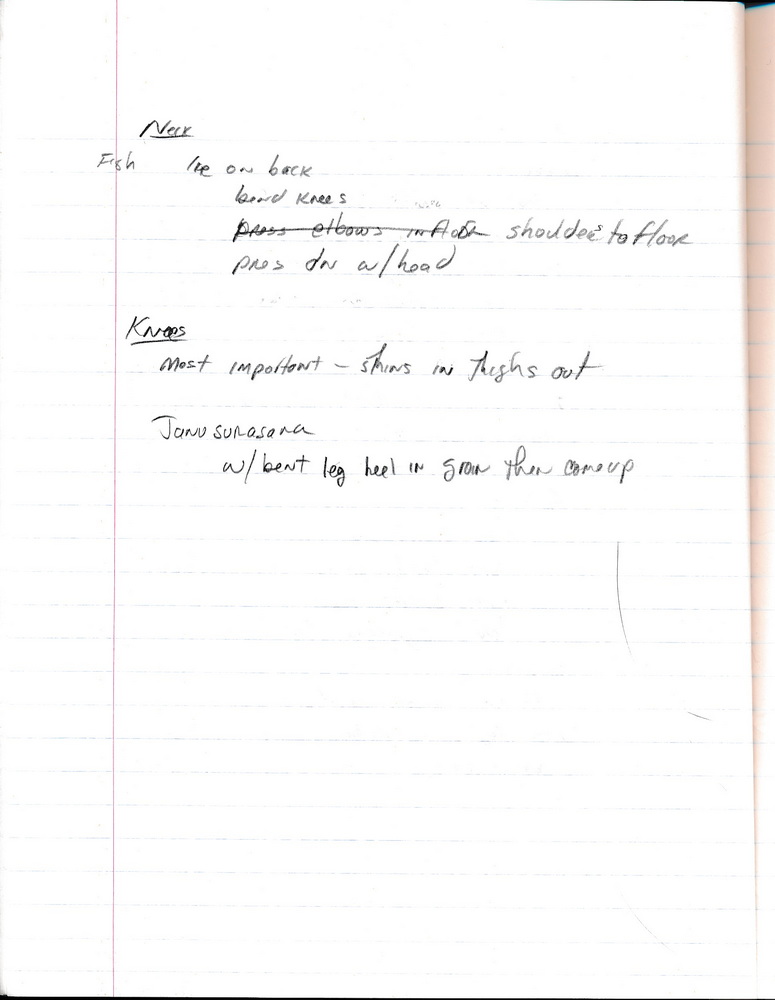 Neck
Fish lie on back
bend knees
press elbows in floor shoulders to floor
pres dn w/head
Knees
Most important - shins in thighs out
Janusurasana
w/bent leg heel in groin then come up